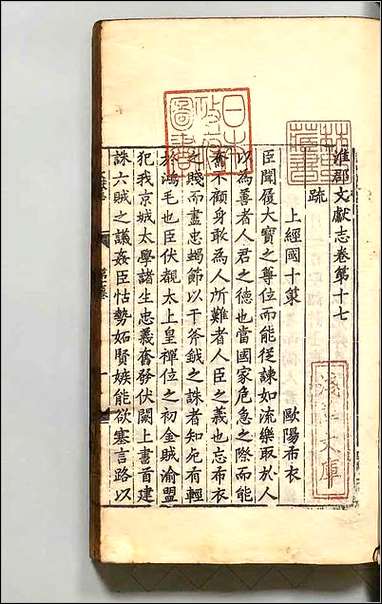 淮郡文獻志卷第十七
疏
上經國十策
歐陽布衣
臣聞履大寶之尊位而能從諫如流樂取於人
以為善者人君之德也當國家危急之際而能
奮不顧身敢為人所難者人臣之義也忘布衣
之賤而盡忠蝎節以干斧鉞之誅者知死有輕
於鴻毛也臣伏覩太上皇禪位之初金賊渝盟
犯我京城太學諸生忠義奮發伏闕上書首建
誅六賊之議姦臣怙勢妬賢嫉能欲塞言路以
日本
圖書
文庫